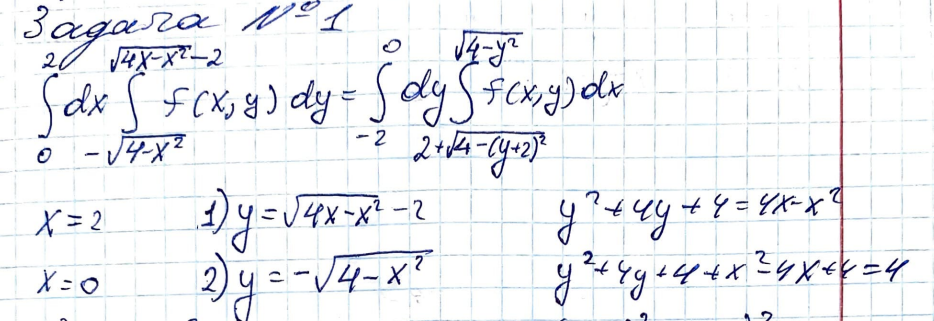 Задача №1
∫₀² dx ∫_{-√(4-x²)}^{√(4x-x²)-2} f(x,y) dy = ∫₋₂⁰ dy ∫_{2+√(4-(y+2)²)}^{√(4-y²)} f(x,y) dx
x=2 1) y=√(4x-x²)-2 y²+4y+4=4x-x²
x=0 2) y=-√(4-x²) y²+4y+4+x²-4x+4=4